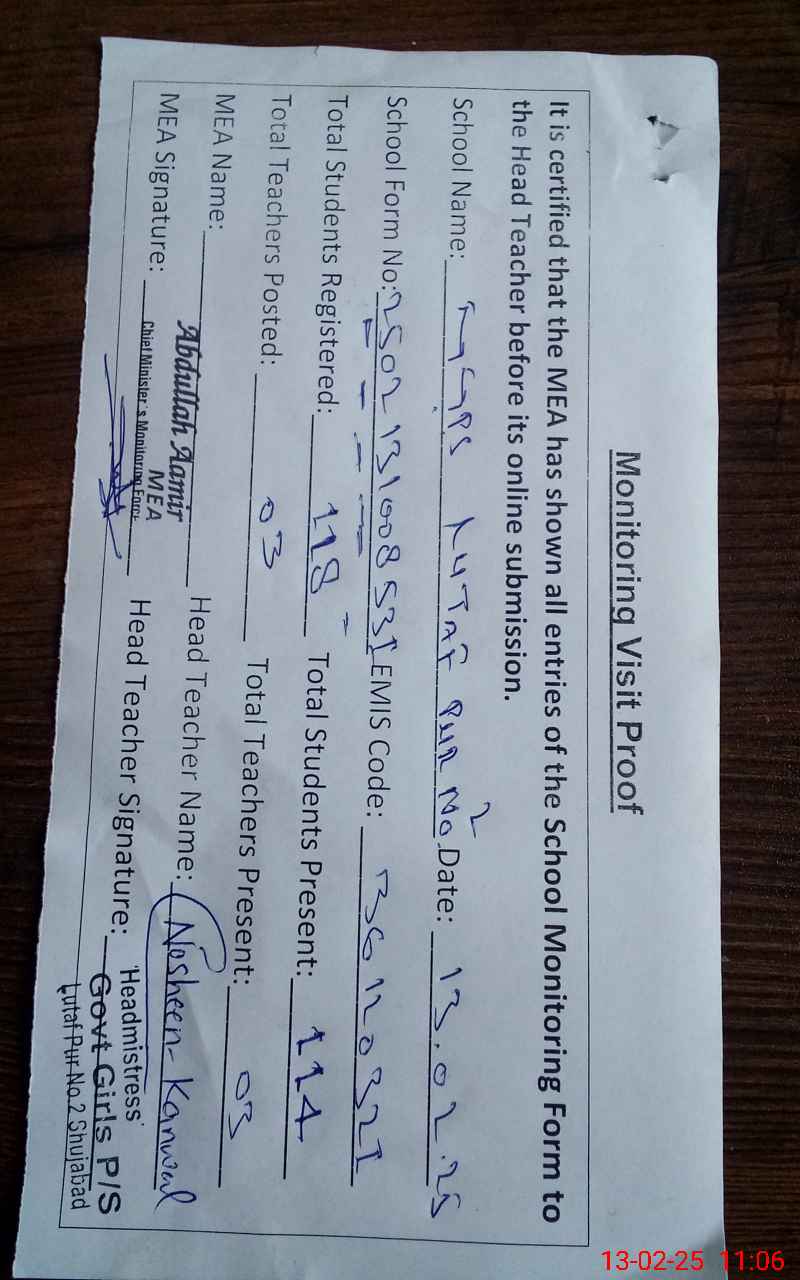 Monitoring Visit Proof
It is certified that the MEA has shown all entries of the School Monitoring Form to
the Head Teacher before its online submission.
School Name: GGPS LUTAF PUR No. 2 Date: 13.02.25
School Form No: 2502131008531 EMIS Code: 36120321
Total Students Registered: 118 Total Students Present: 114
Total Teachers Posted: 03 Total Teachers Present: 03
MEA Name: Abdullah Aamir Head Teacher Name: Nosheen Kanwal
MEA
MEA Signature: Chief Minister's Monitoring Force Head Teacher Signature: 'Headmistress'
Govt Girls P/S
Lutaf Pur No.2 Shujabad
13-02-25 11:06